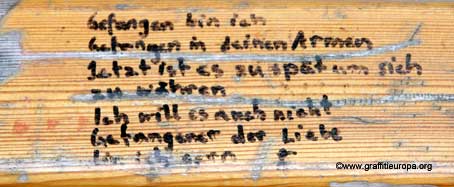 Gefangen bin ich
Gefangen in deinen Armen
Jetzt ist es zu spät um sich
zu währen
Ich will es auch nicht
Gefangener der Liebe
bin ich gern
©www.graffitieuropa.org